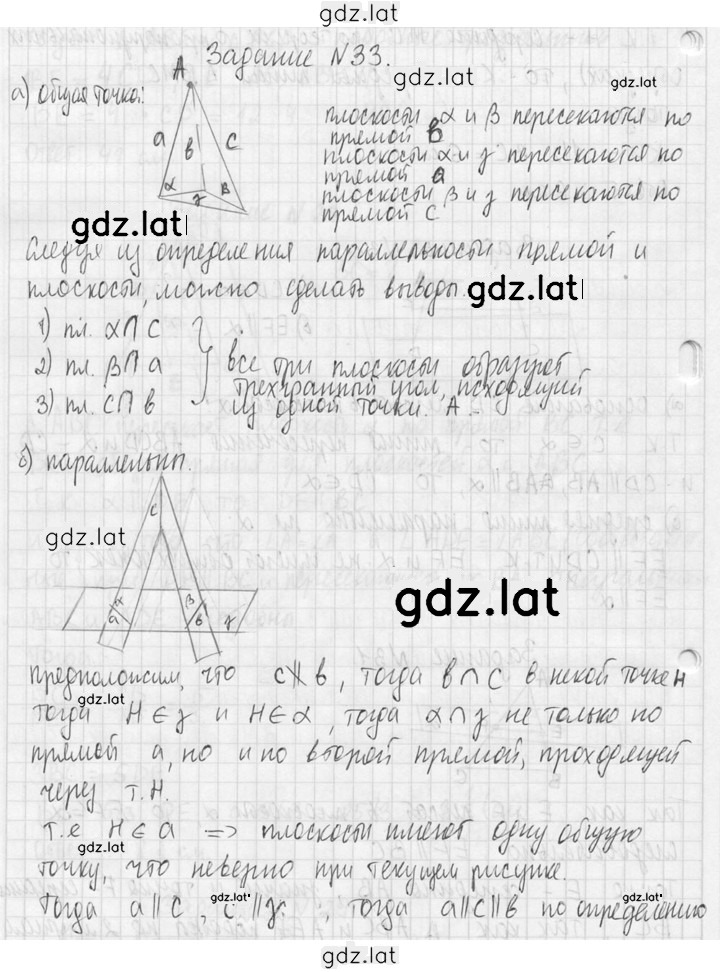 gdz.lat
Задание N33.
gdz.lat
A
а) Общая точка:
a
в
C
α
γ
β
плоскости α и β пересекаются по
прямой в
плоскости α и γ пересекаются по
прямой a
плоскости β и γ пересекаются по
прямой C
gdz.lat
Следуя из определения параллельности прямой и
плоскости, можно сделать выводы.
gdz.lat
1) пл. α∩C
2) пл. β∩a
3) пл. C∩в
все три плоскости образует
трехгранный угол, исходящий
из одной точки. A
б) параллельны.
C
gdz.lat
α
a
β
в
γ
gdz.lat
предположим, что c∦в, тогда в∩C в некой точке H
gdz.lat
тогда H∈γ и H∈α, тогда α∩γ не только по
прямой a, но и по второй прямой, проходящей
через т.H.
т.е H∈a ⇒ плоскости имеют одну общую
gdz.lat
точку, что неверно при текущем рисунке.
gdz.lat
gdz.lat
Тогда a∥C, C∥γ, тогда a∥c∥в по определению
gdz.lat